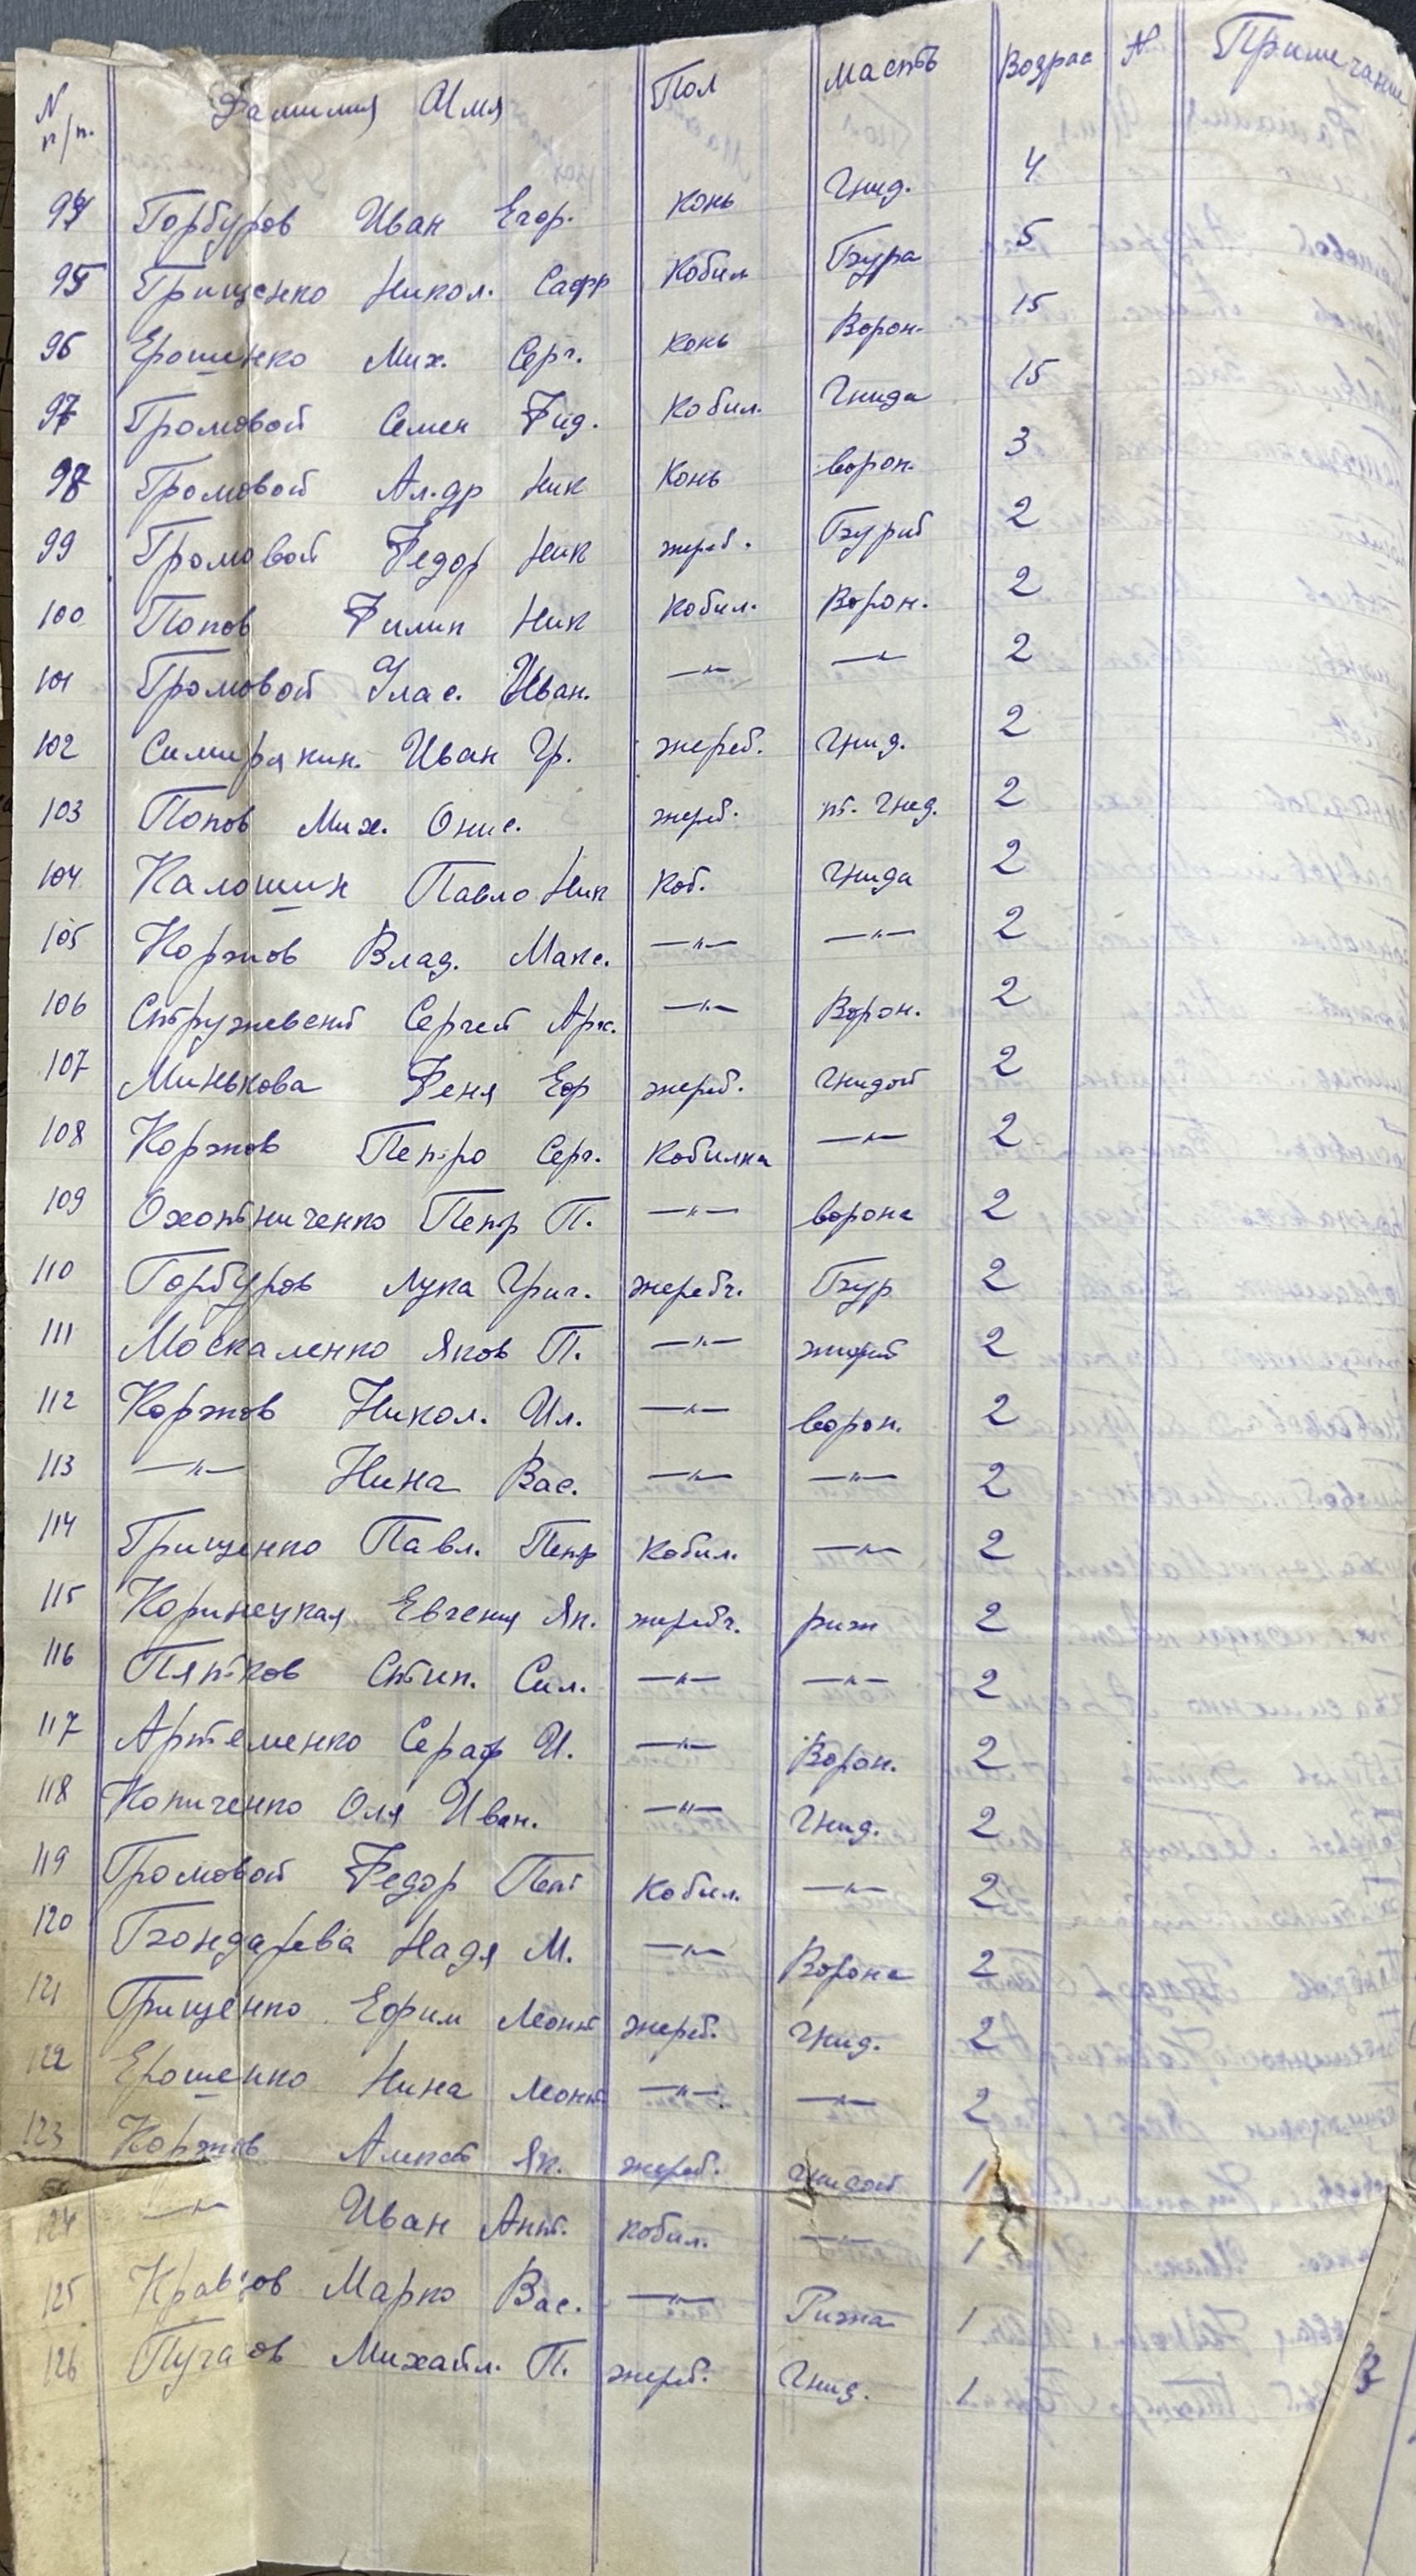 N п/п. Фамилия Имя Пол Масть Возрас N Примечание
94 Горбуров Иван Егор. Конь Гнид. 4
95 Грищенко Никол. Сафр Кобил Бура 5
96 Ерошенко Мих. Серг. Конь Ворон. 15
97 Громовой Семен Фид. Кобил. Гнида 15
98 Громовой Ал-др Ник Конь ворон. 3
99 Громовой Федор Ник жереб. Бурий 2
100 Попов Филип Ник Кобил. Ворон. 2
101 Громовой Улас. Иван. —"— —"— 2
102 Симирякин. Иван Гр. жереб. Гнид. 2
103 Попов Мих. Онис. жереб. т. Гнед. 2
104 Калошин Павло Ник Коб. Гнида 2
105 Коржов Влад. Макс. —"— —"— 2
106 Стружевский Сергей Арх. —"— Ворон. 2
107 Минькова Феня Еф жереб. Гнидой 2
108 Коржов Петро Серг. Кобилка —"— 2
109 Охотниченко Петр П. —"— ворона 2
110 Горбуров Лука Григ. жеребч. Бур 2
111 Москаленко Яков П. —"— 2
112 Коржов Никол. Ил. —"— ворон. 2
113 —"— Нина Вас. —"— —"— 2
114 Грищенко Павл. Петр Кобил. —"— 2
115 Коринецкая Евгения Як. жеребч. риж 2
116 Пятков Стип. Сил. —"— —"— 2
117 Артеменко Сераф И. —"— Ворон. 2
118 Копиченко Оля Иван. —"— Гнид. 2
119 Громовой Федор Пет Кобил. —"— 2
120 Бондарева Надя М. —"— Ворона 2
121 Грищенко Ефим Леонт жереб. Гнид. 2
122 Ерошенко Нина Леонт. —"— —"— 2
123 Коржов Алексей Як. жереб. Гнидой 1
124 —"— Иван Ант. кобил. —"— 1
125 Кравзов Марко Вас. —"— Рижа 1
126 Пугачов Михайл. П. жереб. Гнид. 1